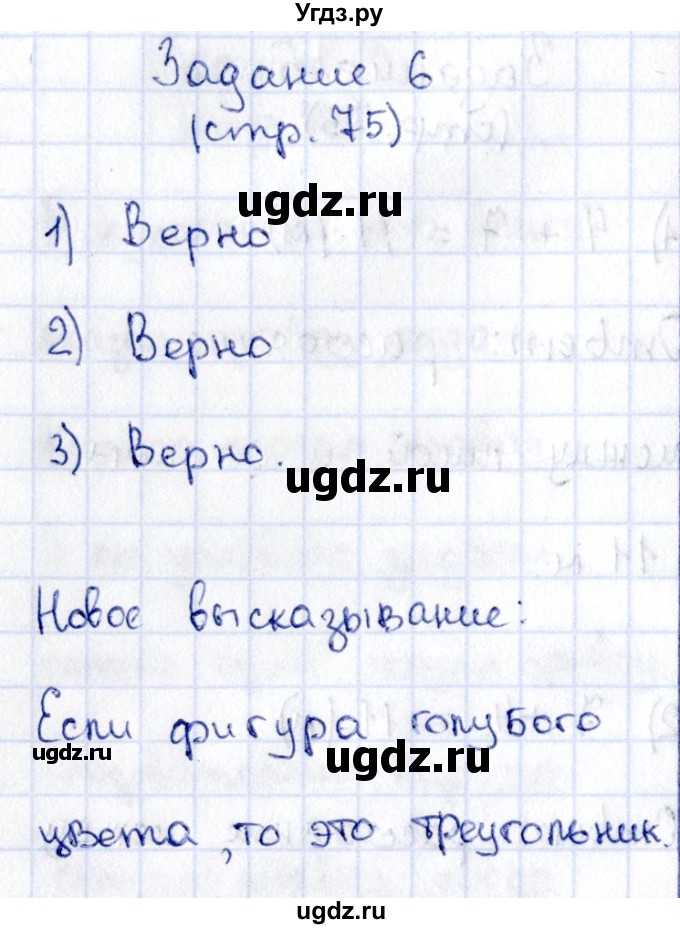 Угдз.ру
Задание 6
(стр. 75)
ugdz.ru
1) Верно
2) Верно
3) Верно.
ugdz.ru
Новое высказывание:
Если фигура голубого
ugdz.ru
ugdz.ru
цвета, то это треугольник.
ugdz.ru